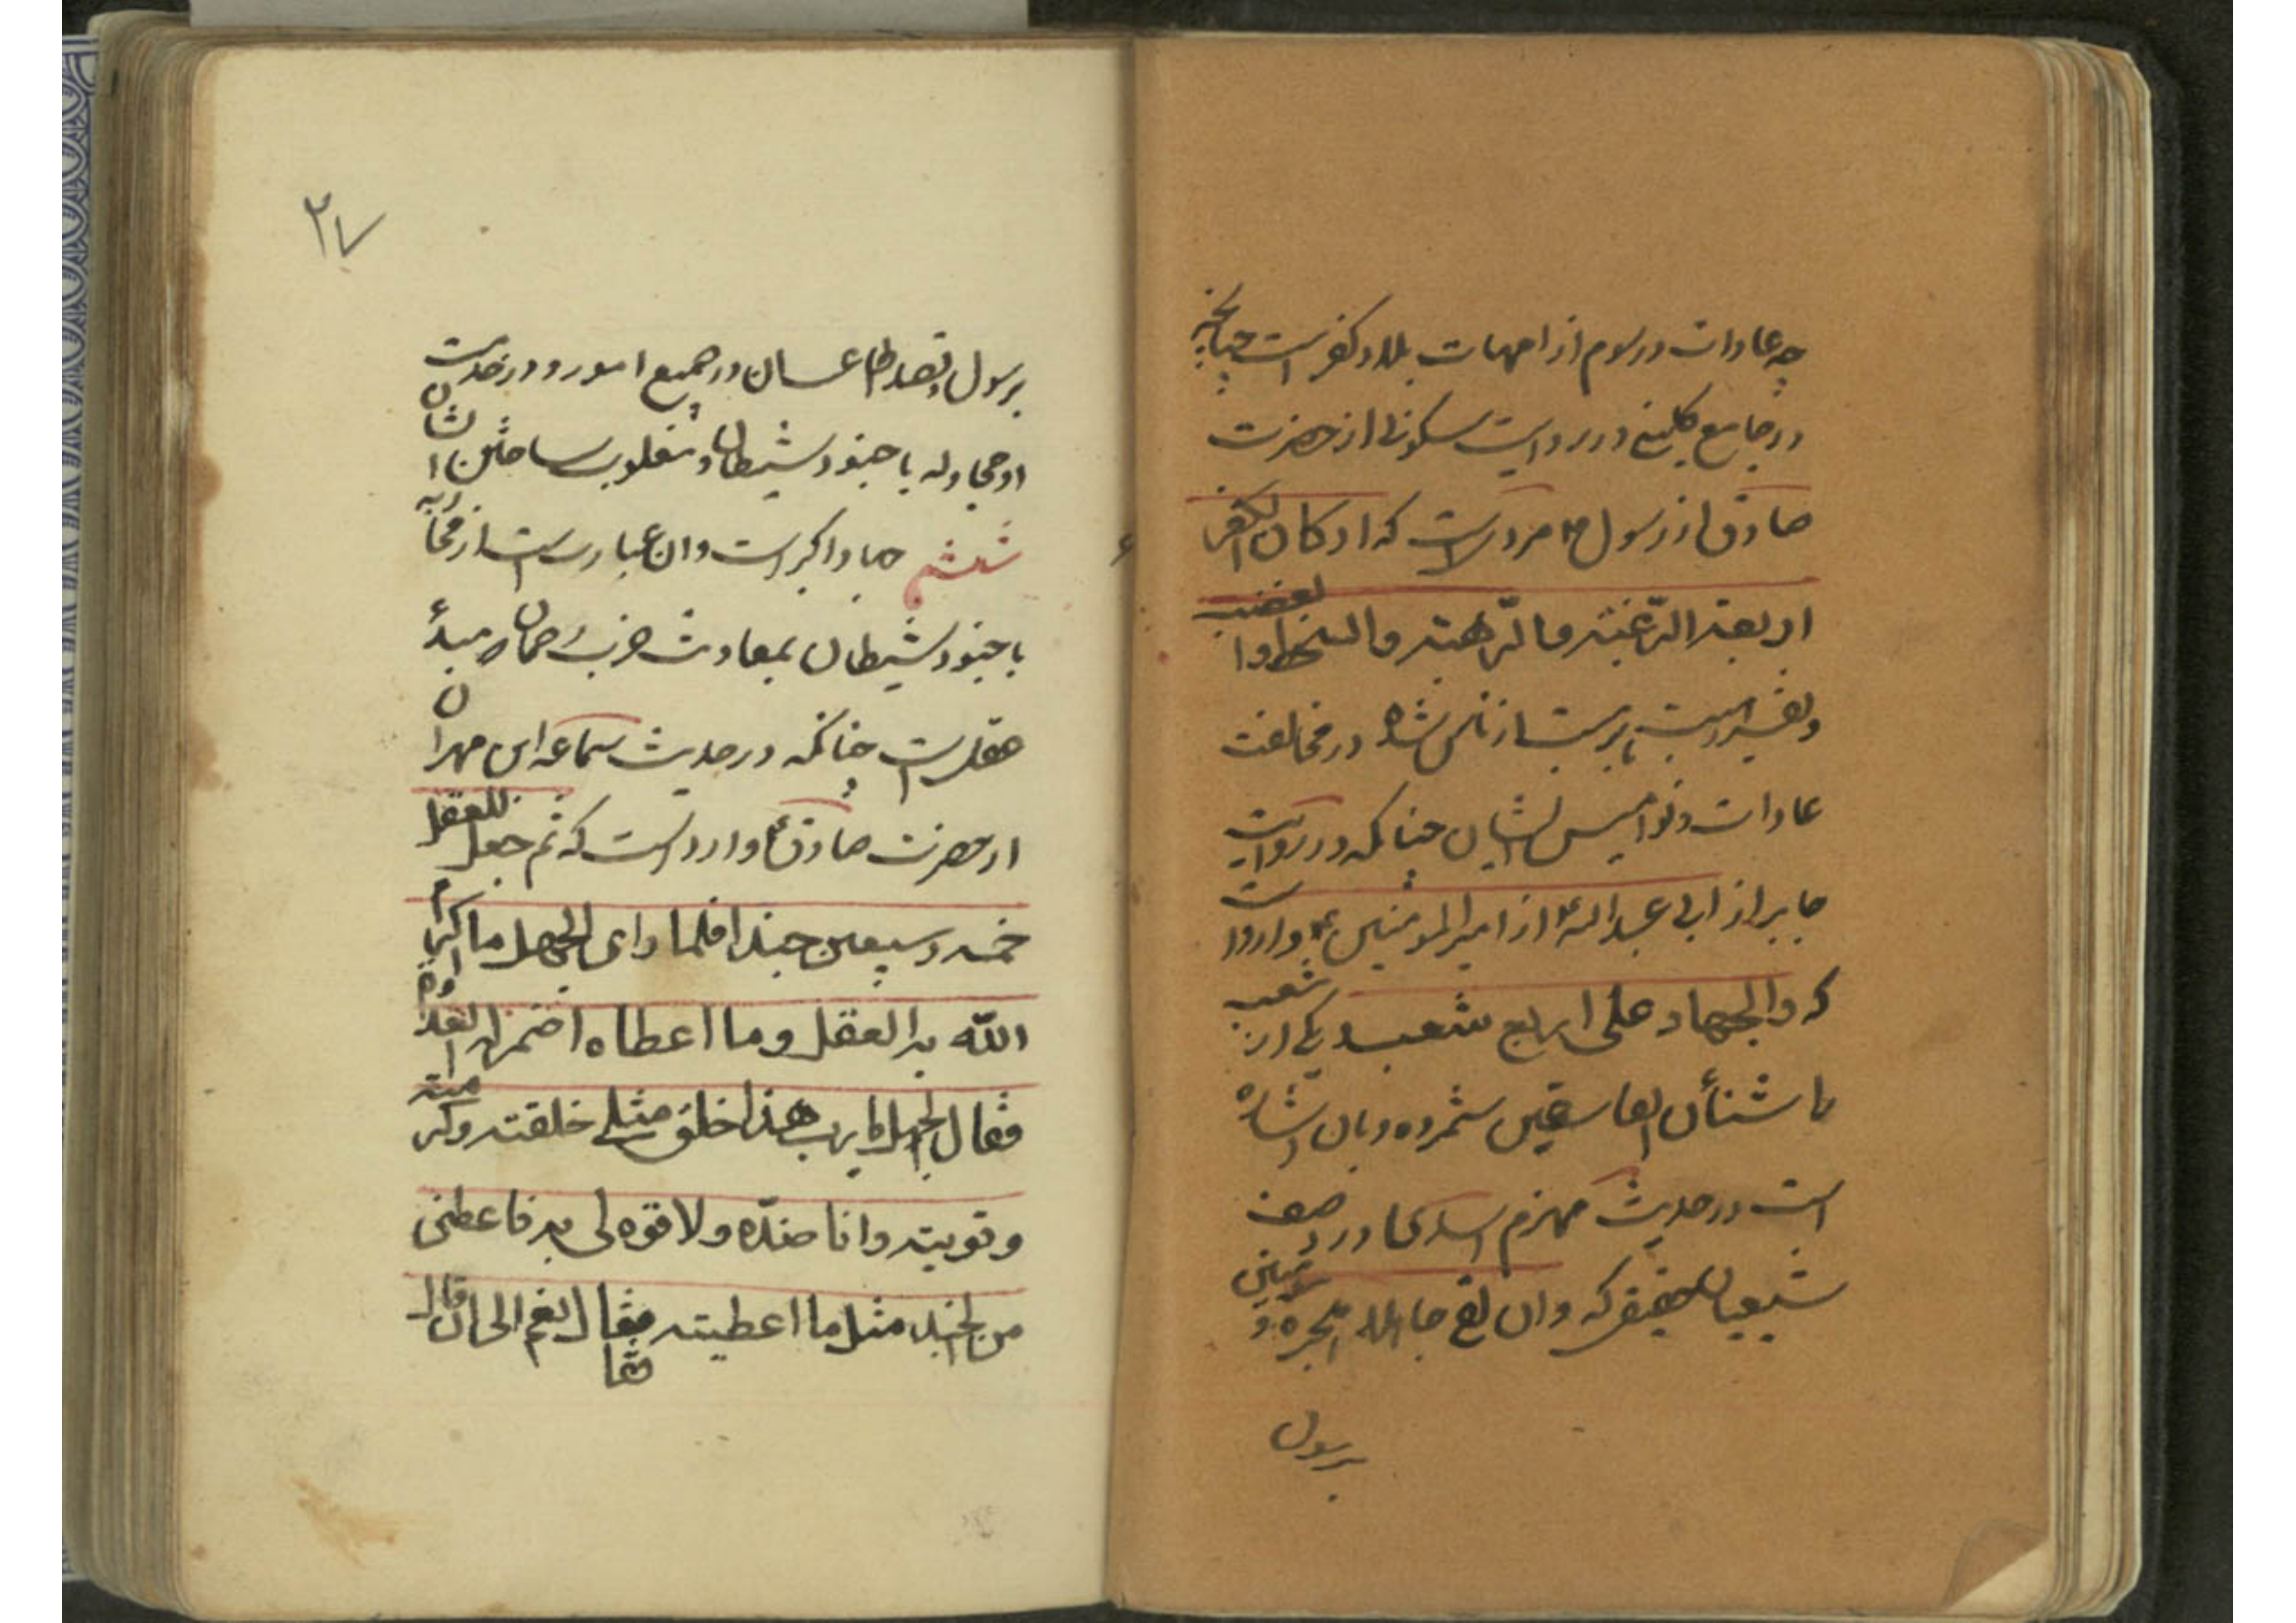 چه عادات و رسوم از امهات بلاد کفر است چنانچه
در جامع کلینی در روایت سکونی از حضرت
صادق از رسول ص مرویست که ارکان الکفر
اربعة الرغبة والرهبة والسخط والغضب
در مخالفت
عادات و نوامیس ایشان چنانکه در روایت
جابر از ابی عبدالله ع از امیرالمؤمنین ع وارد است
که والجهاد علی اربع شعب یکی از شعب
را شنأن الفاسقین شمرده و بان اشاره
است در حدیث مهزم اسدی در وصف
شیعیان حقیقی که وان لقی جاهلا هجره و
برسول
۲۷
برسول و در جمیع امور و در خدمت
او مجادله با جنود شیطان و مغلوب ساختن ایشان
ششم جهاد اکبر است و ان عبارت است از محاربه
با جنود شیطان بمعاونت حزب رحمان که مبدأ
عقلست چنانکه در حدیث سماعه ابن مهران
از حضرت صادق ع وارد است که ثم جعل للعقل
خمسة وسبعین جندا فلما رای الجهل ما اکرم
الله به العقل وما اعطاه اضمر له العداوة
فقال الجهل یا رب هذا خلق مثلی خلقته وکرمته
وقویته وانا ضده ولا قوه لی به فاعطنی
من الجند مثل ما اعطیته فقال نعم الی ان قال
فقا